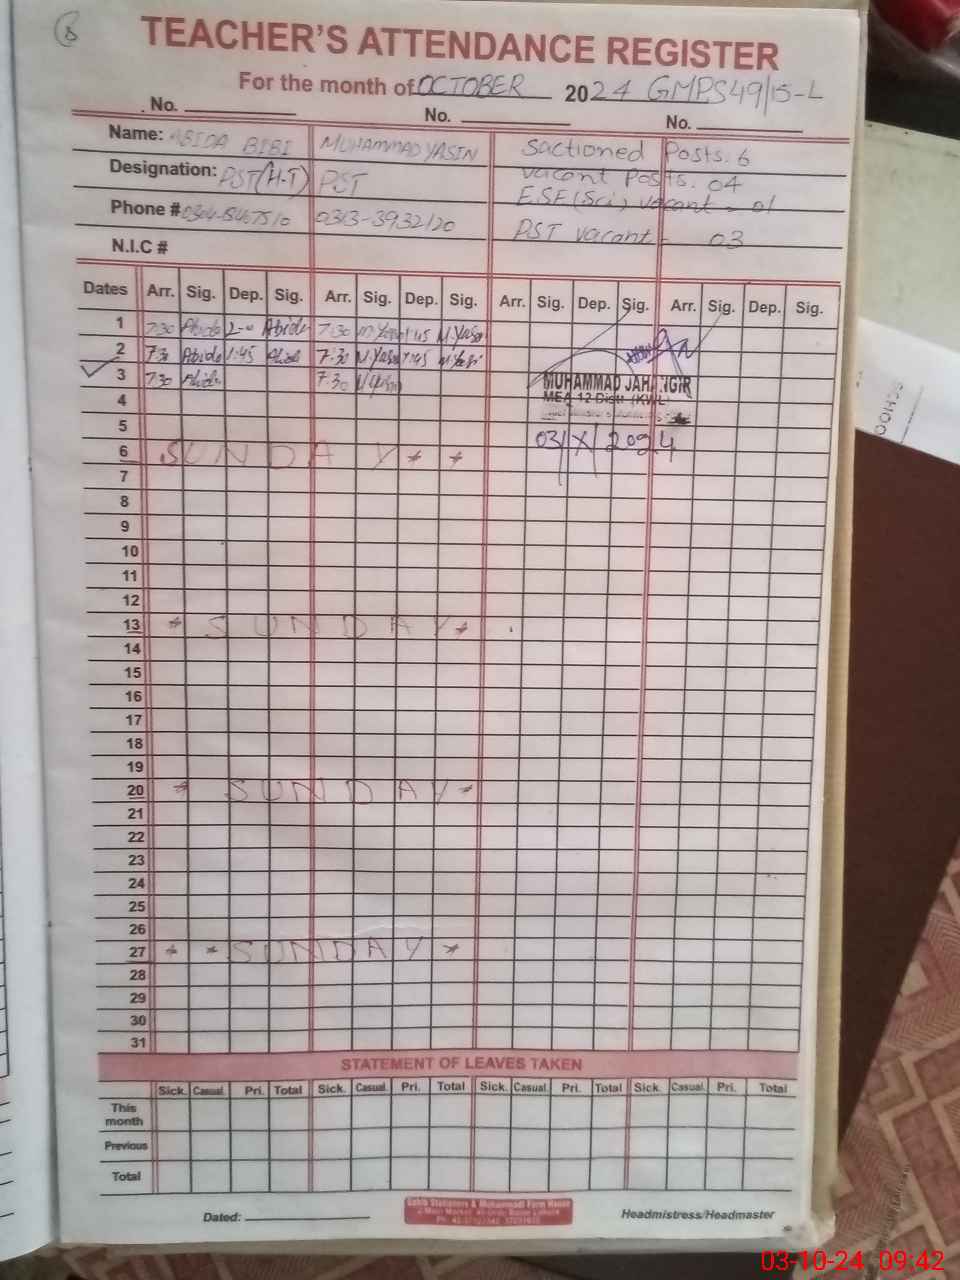 8
TEACHER'S ATTENDANCE REGISTER
For the month of OCTOBER 2024 GMPS49/15-L
No. No. No.
Name: ABIDA BIBI MUHAMMAD YASIN Sactioned Posts. 6
Designation: PST(H-T) PST Vacant Posts. 04
E.SE(Sci) vacant - 01
Phone # 0313-3932120 PST vacant - 03
N.I.C #
Dates Arr. Sig. Dep. Sig. Arr. Sig. Dep. Sig. Arr. Sig. Dep. Sig. Arr. Sig. Dep. Sig.
1 7:30 Abida 2-00 Abida 7:30 M.Yasin 1:45 M.Yasin
2 7:30 Abida 1:45 Abida 7:30 M.Yasin 1:45 M.Yasin
3 7:30 Abida 7:30 M.Yasin MUHAMMAD JAHANGIR
4 MEA 12 Distt (KWL)
5 03/X/2024
6 SUNDAY * *
7
8
9
10
11
12
13 * SUNDAY *
14
15
16
17
18
19
20 * SUNDAY *
21
22
23
24
25
26
27 * * SUNDAY *
28
29
30
31
STATEMENT OF LEAVES TAKEN
Sick. Casual. Pri. Total Sick. Casual. Pri. Total Sick. Casual. Pri. Total Sick. Casual. Pri. Total
This month
Previous
Total
Dated: Headmistress/Headmaster
03-10-24 09:42